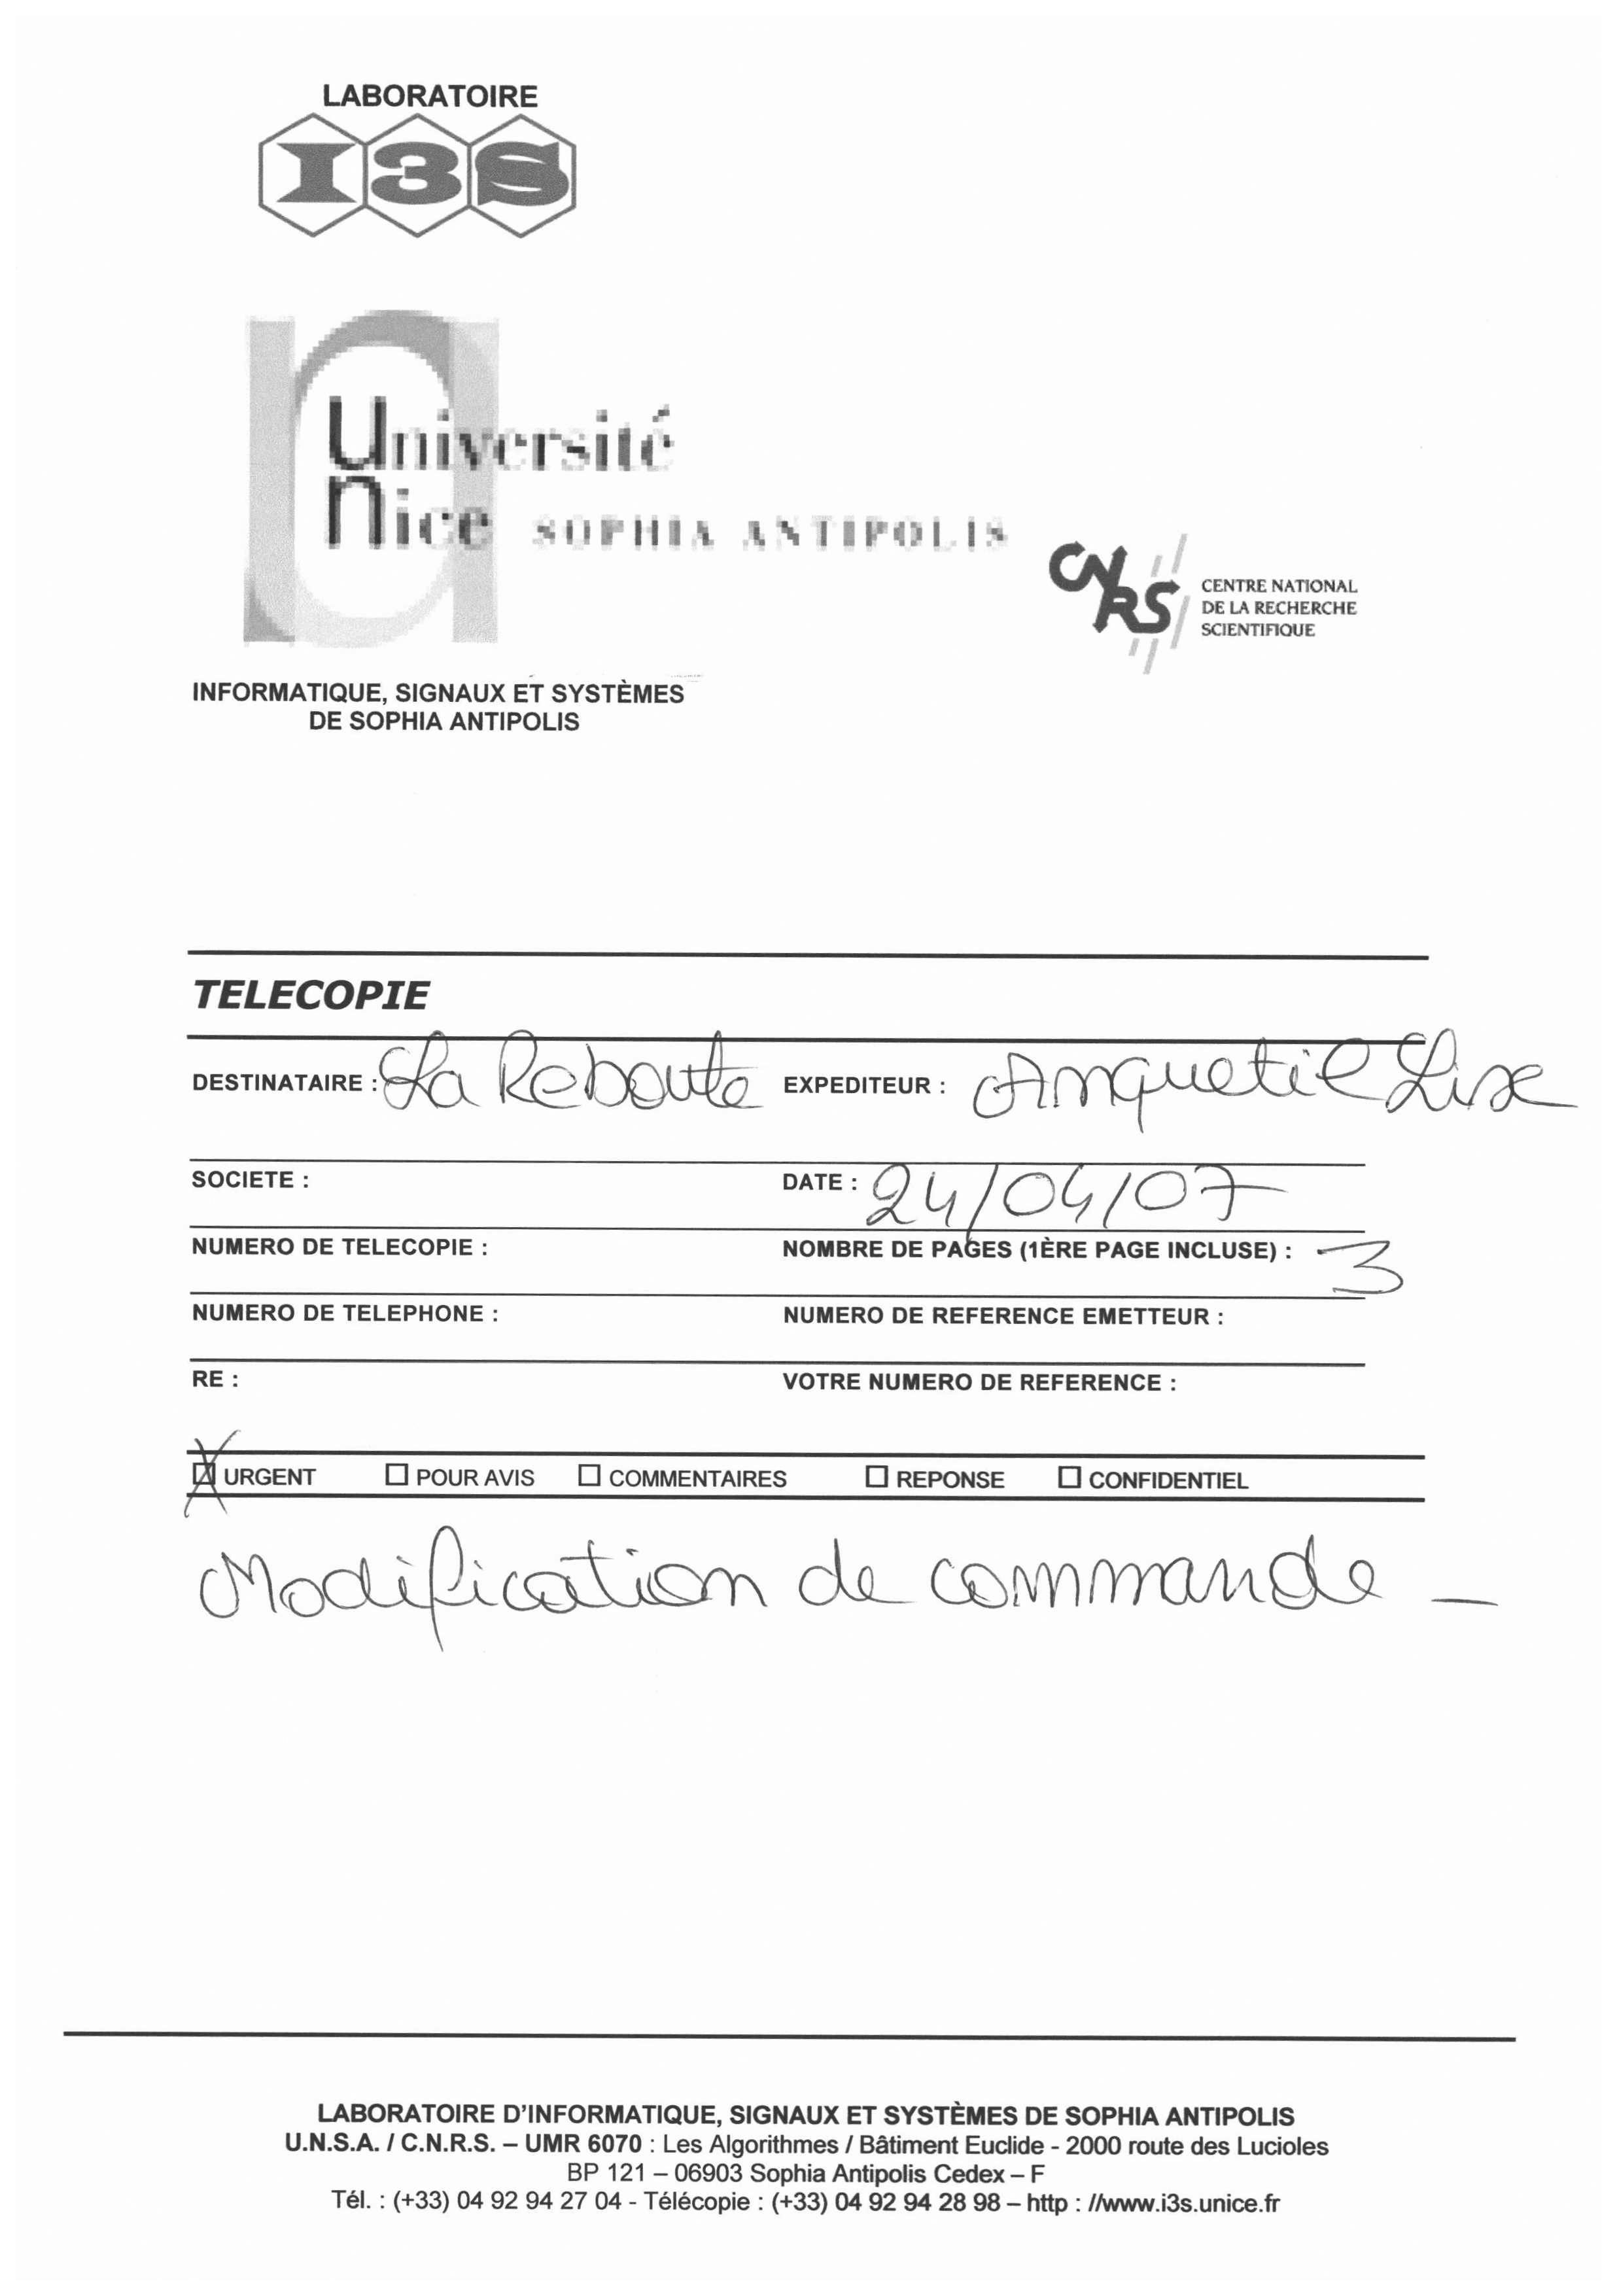 LABORATOIRE
I3S
Université
Nice SOPHIA ANTIPOLIS
CNRS
CENTRE NATIONAL
DE LA RECHERCHE
SCIENTIFIQUE
INFORMATIQUE, SIGNAUX ET SYSTÈMES
DE SOPHIA ANTIPOLIS
TELECOPIE
DESTINATAIRE : La Reboute EXPEDITEUR : Anquetil Lise
SOCIETE : DATE : 24/04/07
NUMERO DE TELECOPIE : NOMBRE DE PAGES (1ÈRE PAGE INCLUSE) : 3
NUMERO DE TELEPHONE : NUMERO DE REFERENCE EMETTEUR :
RE : VOTRE NUMERO DE REFERENCE :
☒ URGENT ☐ POUR AVIS ☐ COMMENTAIRES ☐ REPONSE ☐ CONFIDENTIEL
Modification de commande –
LABORATOIRE D'INFORMATIQUE, SIGNAUX ET SYSTÈMES DE SOPHIA ANTIPOLIS
U.N.S.A. / C.N.R.S. – UMR 6070 : Les Algorithmes / Bâtiment Euclide - 2000 route des Lucioles
BP 121 – 06903 Sophia Antipolis Cedex – F
Tél. : (+33) 04 92 94 27 04 - Télécopie : (+33) 04 92 94 28 98 – http : //www.i3s.unice.fr